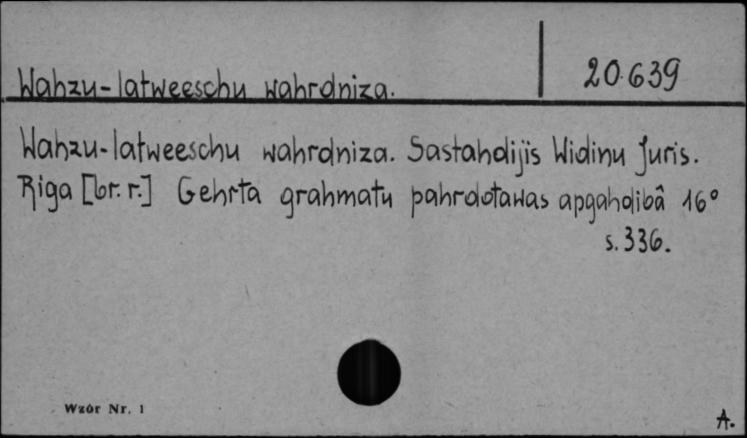 Wahzu-latweeschu wahrdniza.
20.639
Wahzu-latweeschu wahrdniza. Sastahdijis Widinu Juris.
Riga [br. r.] Gehrta grahmatu pahrdotawas apgahdibâ 16°
s. 336.
Wzór Nr. 1
A.